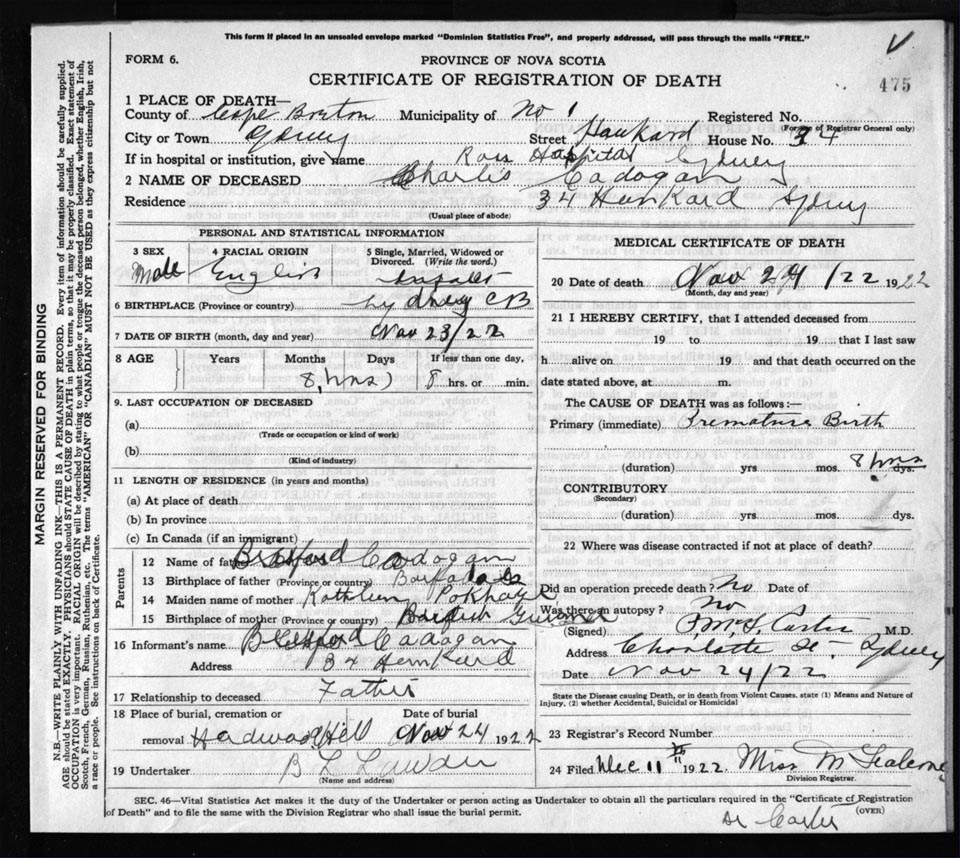 This form if placed in an unsealed envelope marked "Dominion Statistics Free", and properly addressed, will pass through the mails "FREE."
FORM 6.
PROVINCE OF NOVA SCOTIA
475
CERTIFICATE OF REGISTRATION OF DEATH
1 PLACE OF DEATH—
County of Cape Breton Municipality of No 1 Registered No.
(For use of Registrar General only)
City or Town Sydney Street Hankard House No. 34
If in hospital or institution, give name Ross Hospital Sydney
2 NAME OF DECEASED Charles Cadogan
Residence 34 Hankard Sydney
(Usual place of abode)
PERSONAL AND STATISTICAL INFORMATION
3 SEX 4 RACIAL ORIGIN 5 Single, Married, Widowed or Divorced. (Write the word.)
Male English
6 BIRTHPLACE (Province or country) Sydney CB
7 DATE OF BIRTH (month, day and year) Nov 23/22
8 AGE Years Months Days If less than one day,
8 hrs) 8 hrs. or min.
9. LAST OCCUPATION OF DECEASED
(a)
(Trade or occupation or kind of work)
(b)
(Kind of industry)
11 LENGTH OF RESIDENCE (in years and months)
(a) At place of death
(b) In province
(c) In Canada (if an immigrant)
Parents
12 Name of father Cadogan
13 Birthplace of father (Province or country)
14 Maiden name of mother
15 Birthplace of mother (Province or country)
16 Informant's name Cadogan
Address 34 Hankard
17 Relationship to deceased Father
18 Place of burial, cremation or removal Hardwood Hill Date of burial Nov 24 1922
19 Undertaker B L
(Name and address)
MEDICAL CERTIFICATE OF DEATH
20 Date of death Nov 24/22 1922
(Month, day and year)
21 I HEREBY CERTIFY, that I attended deceased from
19 to 19 that I last saw
h alive on 19 and that death occurred on the
date stated above, at m.
The CAUSE OF DEATH was as follows:—
Primary (immediate) Premature Birth
(duration) yrs mos. 8 hrs dys.
CONTRIBUTORY
(Secondary)
(duration) yrs. mos. dys.
22 Where was disease contracted if not at place of death?
Did an operation precede death? No Date of
Was there an autopsy? No
(Signed) M.D.
Address Charlotte St. Sydney
Date Nov 24/22
State the Disease causing Death, or in death from Violent Causes, state (1) Means and Nature of Injury, (2) whether Accidental, Suicidal or Homicidal
23 Registrar's Record Number
24 Filed Dec 11 1922. Miss M
Division Registrar.
SEC. 46—Vital Statistics Act makes it the duty of the Undertaker or person acting as Undertaker to obtain all the particulars required in the "Certificate of Registration
of Death" and to file the same with the Division Registrar who shall issue the burial permit.
(OVER)
Dr Carter
MARGIN RESERVED FOR BINDING
N.B.—WRITE PLAINLY WITH UNFADING INK—THIS IS A PERMANENT RECORD. Every item of information should be carefully supplied.
AGE should be stated EXACTLY. PHYSICIANS should STATE CAUSE OF DEATH in plain terms, so that it may be properly classified. Exact statement of
OCCUPATION is very important. RACIAL ORIGIN will be described by stating to what people or tongue the deceased person belonged, whether English, Irish,
Scotch, French, German, Russian, Ruthenian, etc. The terms "AMERICAN" OR "CANADIAN" MUST NOT BE USED as they express citizenship but not
a race or people. See instructions on back of Certificate.